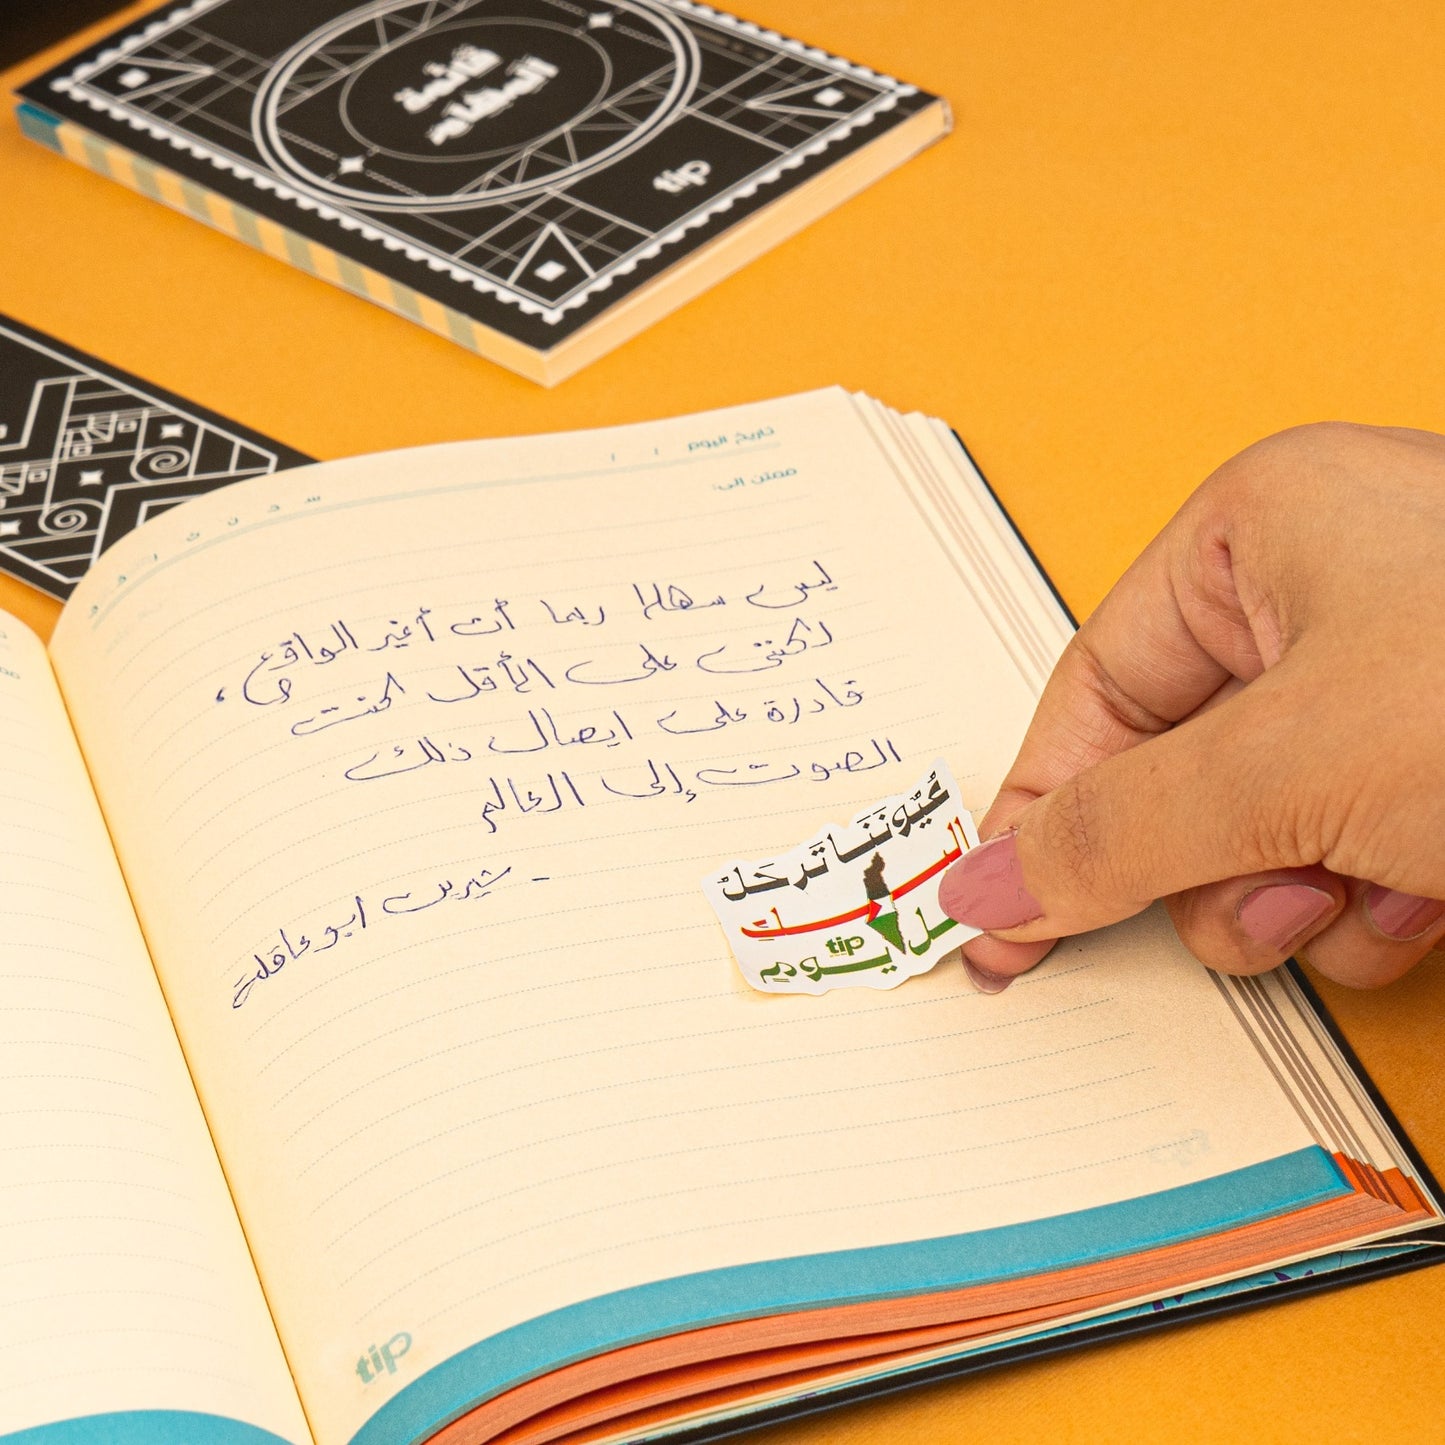 قائمة
المهام
tip
تاريخ اليوم / /
ممتن الى:
س ح ن ث ر خ ج
ليس سهلا ربما أن أغير الواقع،
لكنني على الأقل كنت
قادرة على ايصال ذلك
الصوت إلى العالم
- شيرين ابو عاقلة
عُيُونَنَا تَرحَلُ
إليكِ
كل يومٍ
tip
tip